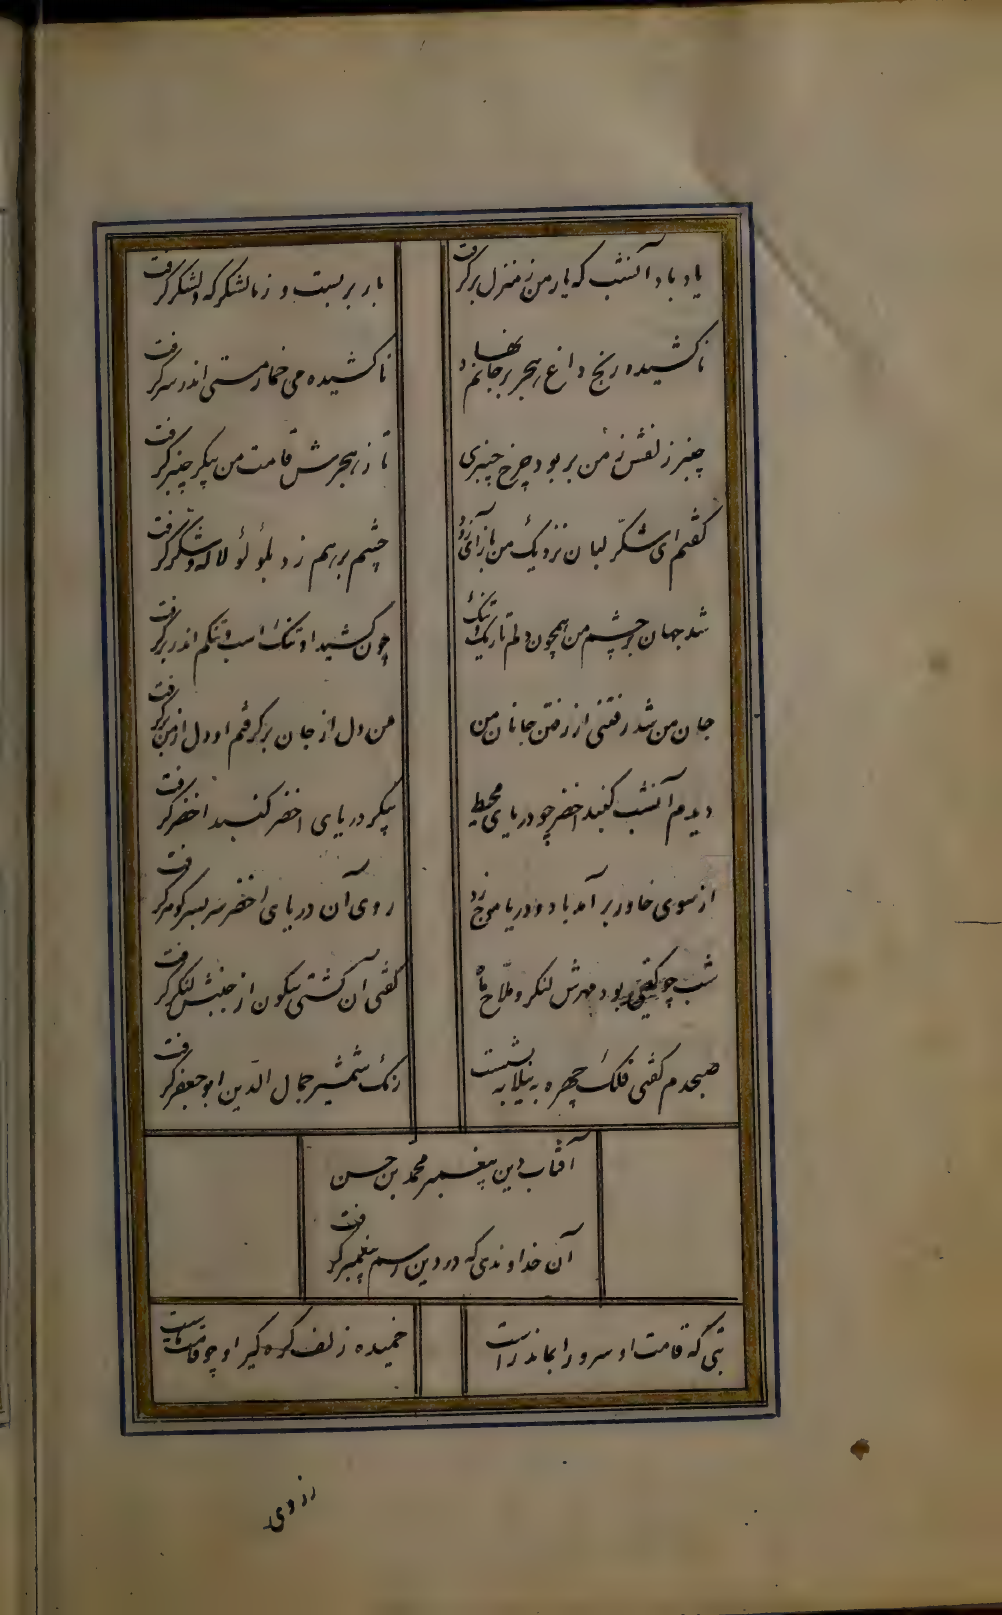 یاد باد آنشب که یار من ز منزل برگرفت
بار بربست و ز ما لشکر که و لشکر گرفت
ناکشیده رنج داغ هجر بر جانم نهاد
ناکشیده می خمار مستی اندر سر گرفت
چنبر زلفش ز من بربود چرخ چنبری
تا ز هجرش قامت من پیکر چنبر گرفت
گفتم ای شکر لبان نزدیک من باز آی زود
چشم بر هم زد بلولو لاله و شکر گرفت
شد جهان بر چشم من همچون دلم تاریک و تنک
چون کشید او تنک اسب و تنکم اندر بر گرفت
جان من شد رفتنی از رفتن جانان من
من دل از جان برگرفتم او دل از من برگرفت
دیدم آنشب گنبد اخضر چو دریای محیط
پیکر دریای اخضر گنبد اخضر گرفت
از سوی خاور برآمد باد و دریا موج زد
روی آن دریای اخضر سربسر گوهر گرفت
شب چو کشتی بود مهرش لنگر و ملاح ماه
گفتی آن کشتی سکون از جنبش لنگر گرفت
صبحدم گفتی فلک چهره به نیلابه بشست
رنگ شمشیر جمال الدین ابو جعفر گرفت
آفتاب دین پیغمبر محمد بن حسن
آن خداوندی که در دین رسم پیغمبر گرفت
بتی که قامت او سرو را بماند راست
خمیده زلف گره گیر او چو قامت ماست
ز روی